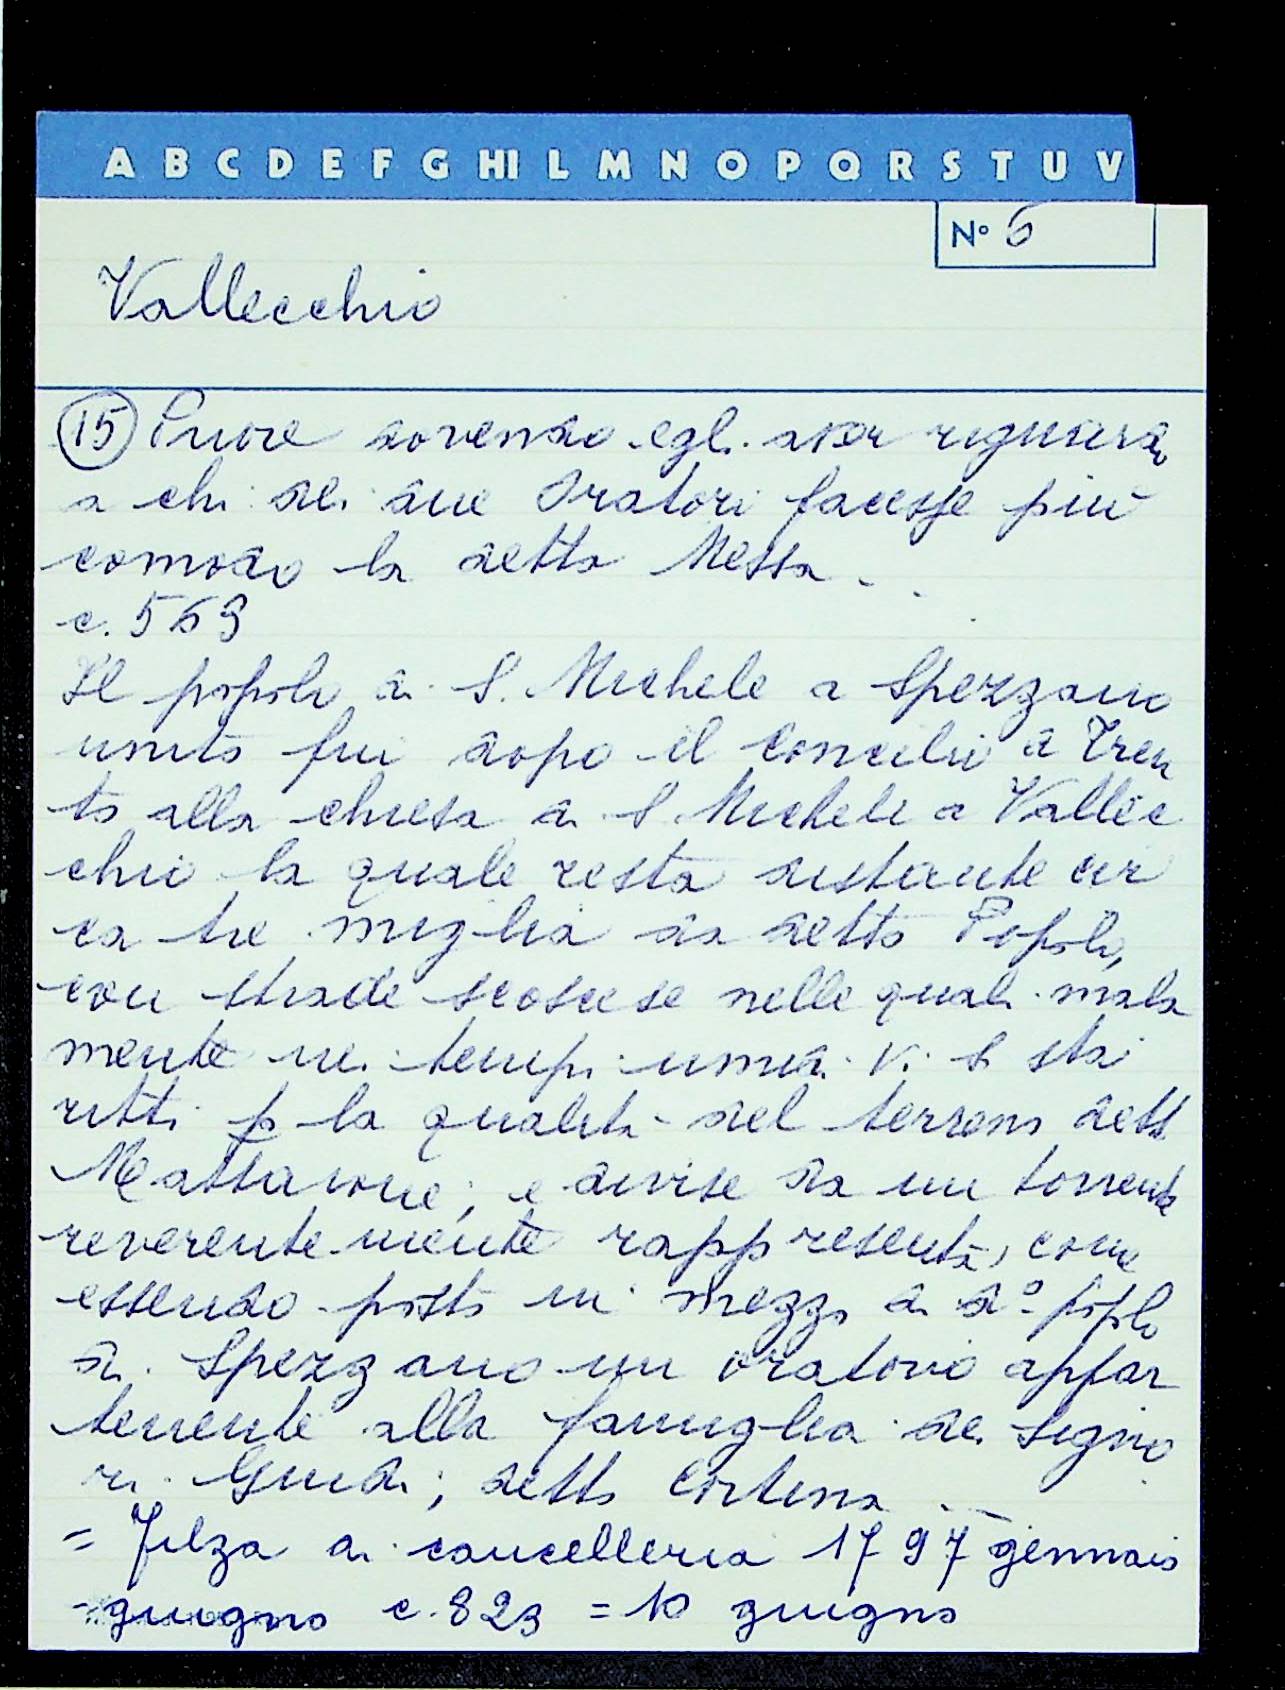 A B C D E F G HI L M N O P Q R S T U V
N° 6
Vallecchio
(15) Priore dovendo egli aver riguardo
a chi dei due Oratori facesse più
comodo la detta Messa.
c. 569
Il popolo di S. Michele a Spezzano
unito fu dopo il Concilio di Tren
to alla chiesa di S. Michele a Vallec
chio la quale resta distante cir
ca tre miglia da detto Popolo,
con strade scoscese nelle quali mala
mente nei tempi umidi vi si sta
ritti p la qualità del terreno dett
Mattaione, e divise da un torrente
reverentemente rappresenta, come
essendo posto in mezzo di d° popolo
di Spezzano un oratorio appar
tenente alla famiglia dei signo
ri Guidi; detto Cortina
= Filza di cancelleria 1797 gennaio
- giugno c. 823 = 10 giugno